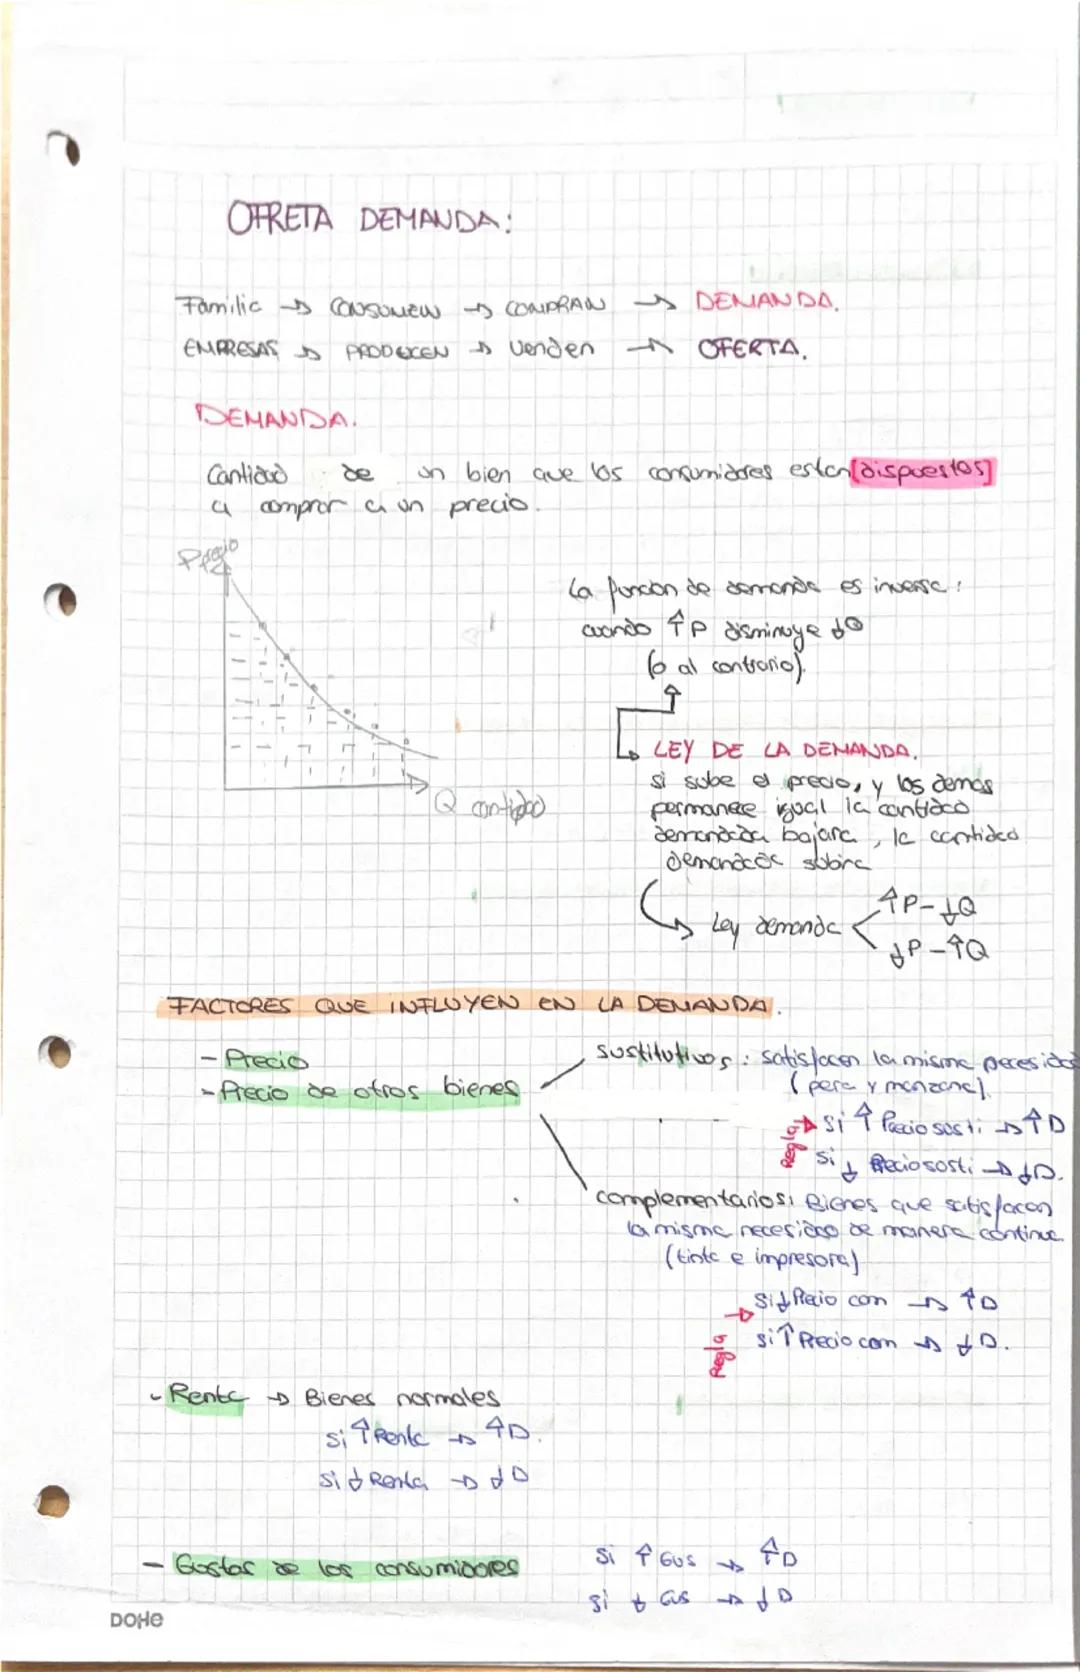 OFRETA DEMANDA:
Familia → CONSUMEN → COMPRAN → DEMANDA.
EMPRESAS → PRODUCEN → venden → OFERTA.
DEMANDA.
Cantidad de un bien que los consumidores estan [dispuestos]
a comprar a un precio.
Precio
Q cantidad
La funcion de demanda es inversa:
cuando ↑P disminuye ↓Q
(o al contrario).
LEY DE LA DEMANDA.
si sube el precio, y los demas
permanece igual la cantidad
demandada bajara, la cantidad
demandada subira
Ley demanda < ↑P-↓Q
↓P-↑Q
FACTORES QUE INFLUYEN EN LA DEMANDA.
- Precio
- Precio de otros bienes
sustitutivos: satisfacen la misma necesidad
(pera y manzana).
Regla → si ↑ Precio susti → ↑D
si ↓ Precio susti → ↓D.
complementarios: Bienes que satisfacen
la misma necesidad de manera continua
(tinta e impresora)
Regla → si ↓ Precio com → ↑D
si ↑ Precio com → ↓D.
- Renta → Bienes normales
si ↑ Renta → ↑D.
si ↓ Renta → ↓D
- Gustos de los consumidores
si ↑ Gus → ↑D
si ↓ Gus → ↓D
DOHE